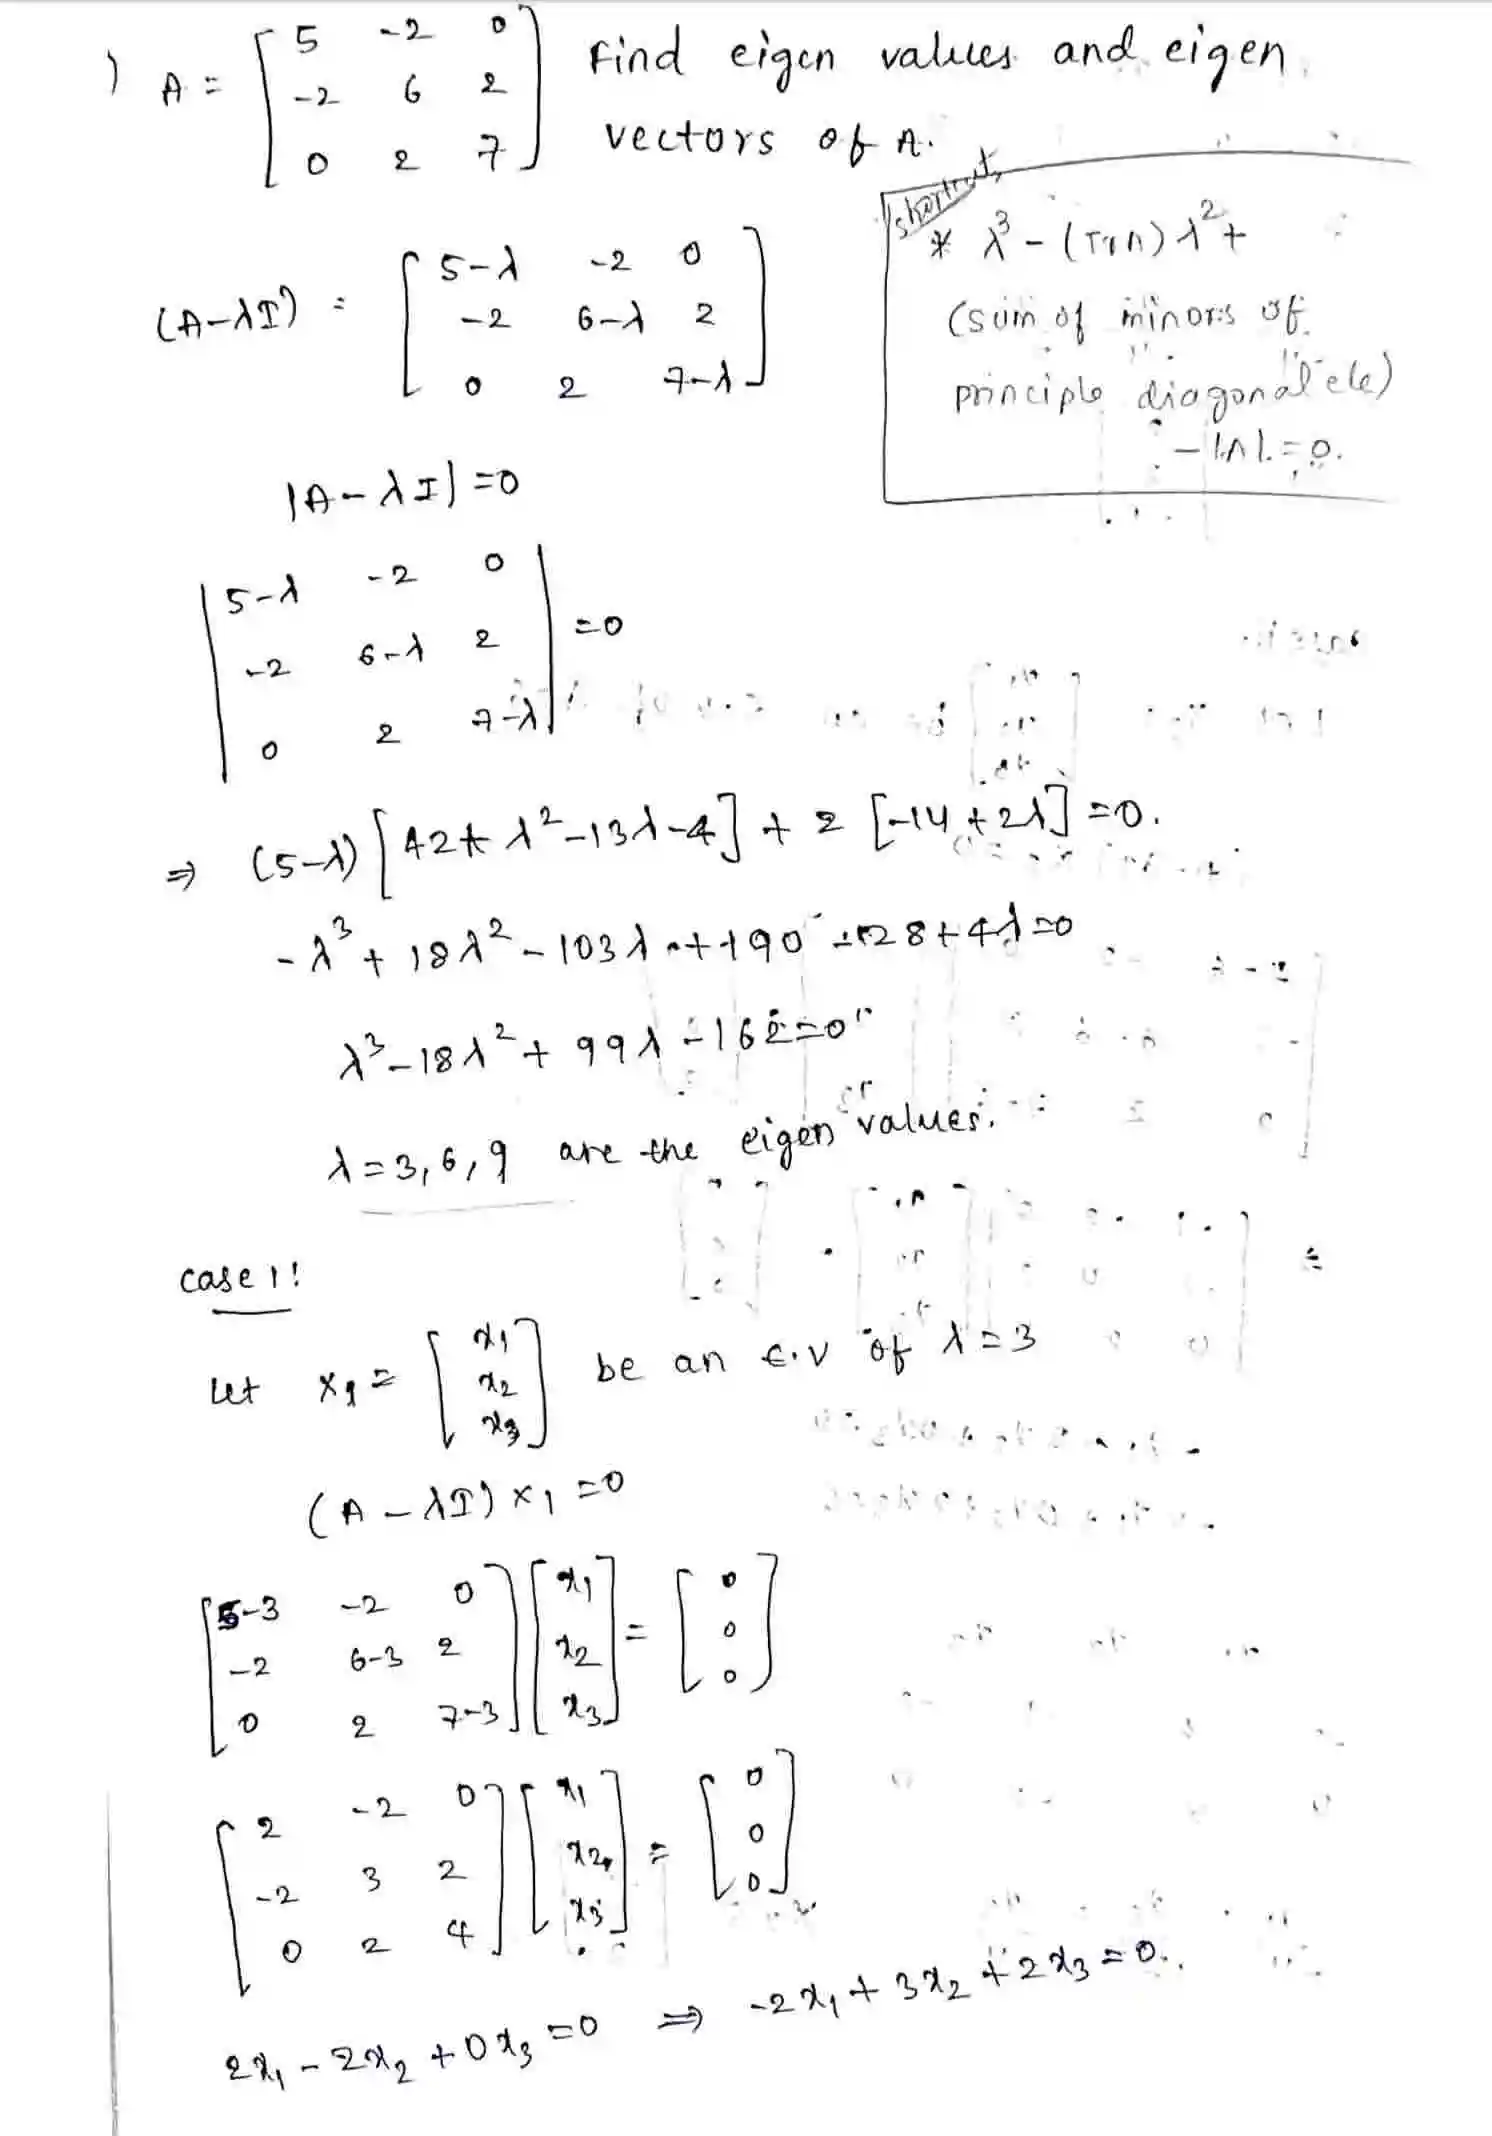 ) A = [ 5 -2 0
-2 6 2
0 2 7 ] Find eigen values and eigen
vectors of A.
shortcut
* λ³ - (Tr A) λ² +
(sum of minors of
principle diagonal ele)
- |A| = 0.
(A-λI) = [ 5-λ -2 0
-2 6-λ 2
0 2 7-λ ]
|A-λI| = 0
| 5-λ -2 0
-2 6-λ 2
0 2 7-λ | = 0
⇒ (5-λ) [42+λ²-13λ-4] + 2 [-14+2λ] = 0.
-λ³ + 18λ² - 103λ + 190 - 28 + 4λ = 0
λ³ - 18λ² + 99λ - 162 = 0
λ = 3, 6, 9 are the eigen values.
case 1:
Let x₁ = [ x₁
x₂
x₃ ] be an E.V of λ = 3
(A - λI) x₁ = 0
[ 5-3 -2 0
-2 6-3 2
0 2 7-3 ] [ x₁
x₂
x₃ ] = [ 0
0
0 ]
[ 2 -2 0
-2 3 2
0 2 4 ] [ x₁
x₂
x₃ ] = [ 0
0
0 ]
2x₁ - 2x₂ + 0x₃ = 0 ⇒ -2x₁ + 3x₂ + 2x₃ = 0.